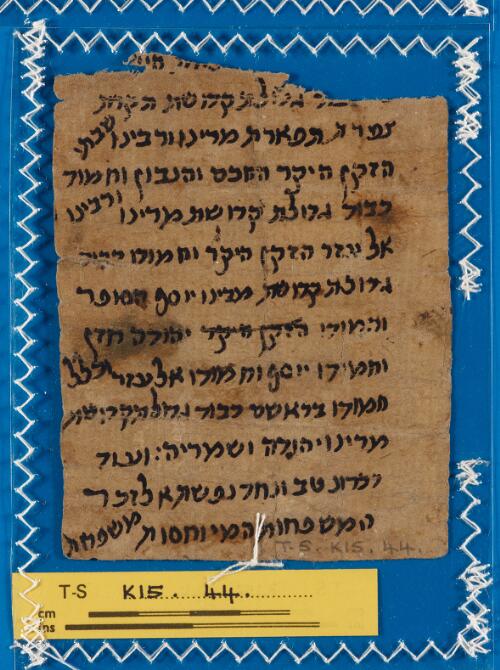 כבוד גדולת קדושת הקרת
צפירת תפארת מרינו ורבינו שבתי
הזקן היקר החכם והנבון וחמוד
כבוד גדולת קדושת מרינו ורבינו
אלעזר הזקן היקר וחמודו כבוד
גדולת קדושת מרינו יוסף הסופר
וחמודו הזקן היקר יהודה חזן
וחמודו יוסף וחמודו אלעזר
חמודו בראשם כבוד גדולת קדושת
מרינו יהודה ושמריה: ועוד
דכרון טב ונחת נפש
המשפחות המיוחסות משפחת
T-S. K15. 44.
T-S K15. 44.
cm
ins